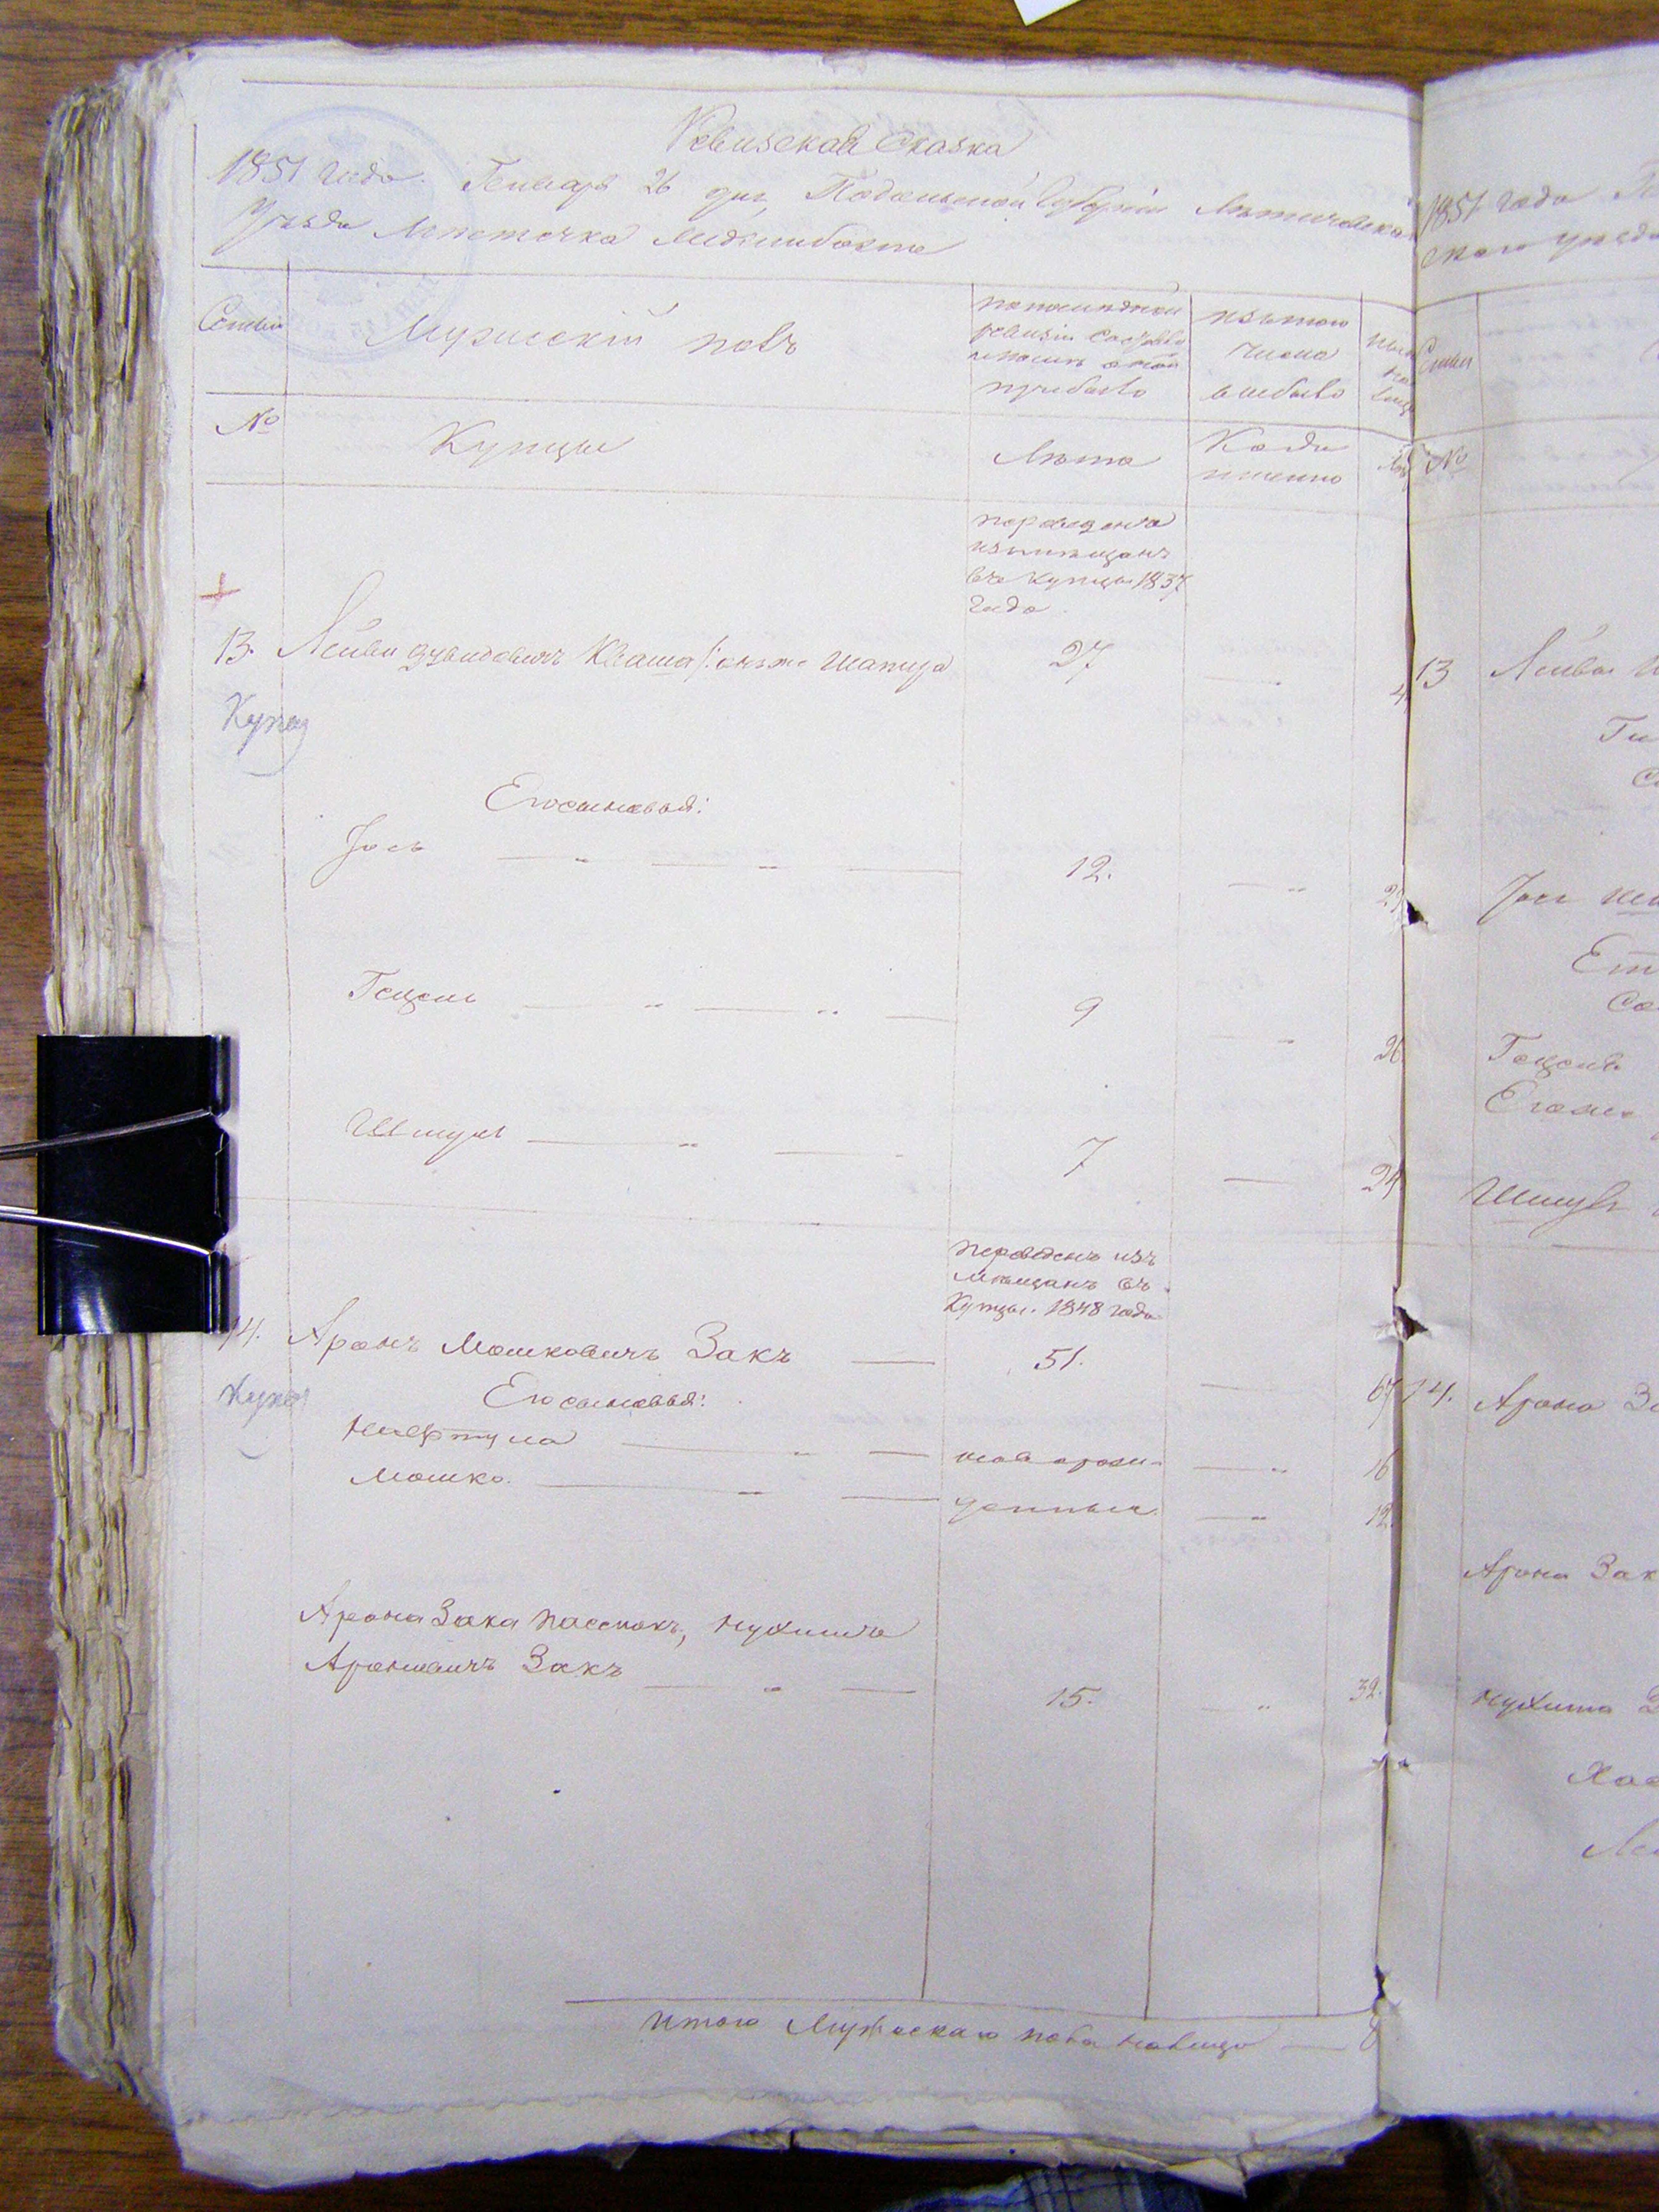 Ревизская Сказка
1851 года Генваря 26 дня, Подольской Губернии Летичевска
Уезда местечка Меджибожа
Семьи
Мужескій полъ
по последней
ревизіи состояло
и после оной
прибыло
изътого
числа
выбыло
№
Купцы
Лета
Когда
именно
переведенъ
измещанъ
въ купцы 1837
года
13. Лейба Дувидовичъ Кваша /: онъже Шапира 27
Купец
Его сыновья:
Іось 12.
Гецель 9 26
Шмуль 7 24
переведенъ изъ
мещанъ въ
Купцы. 1848 года
14. Аронъ Мошковичъ Закъ 51. 67
Купец
Его сыновья:
Нафтула новорож- 16
Мошко. денные. 12.
Арона Зака пасснокъ, Нухимъ
Ароновичъ Закъ 15. 32.
Итого Мужескаго пола налицо 8
1851 года
ского уезда
Семьи
№
13 Лейбы
Ги
Іося
Ет
Гецеля
Егоже
Шмуля
14. Арона За
Арона Зак
Нухима З
Хас